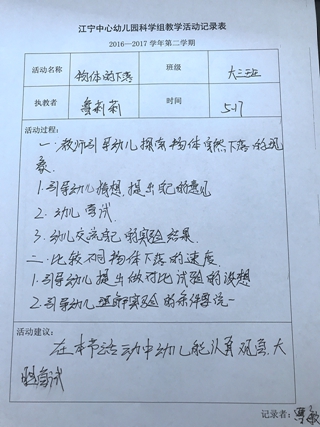 江宁中心幼儿园科学组教学活动记录表
2016—2017 学年第二学期
活动名称 物体的下落 班级 大三班
执教者 莉莉 时间 5.17
活动过程:
一、教师引导幼儿探索物体自然下落的现
象.
1.引导幼儿猜想,提出自己的意见
2.幼儿尝试.
3.幼儿交流自己的实验结果.
二.比较不同物体下落的速度
1.引导幼儿提出做对比试验的设想
2.引导幼儿理解实验的条件要统一
活动建议:
在本节活动中幼儿能认真观察,大
胆尝试
记录者: 敏